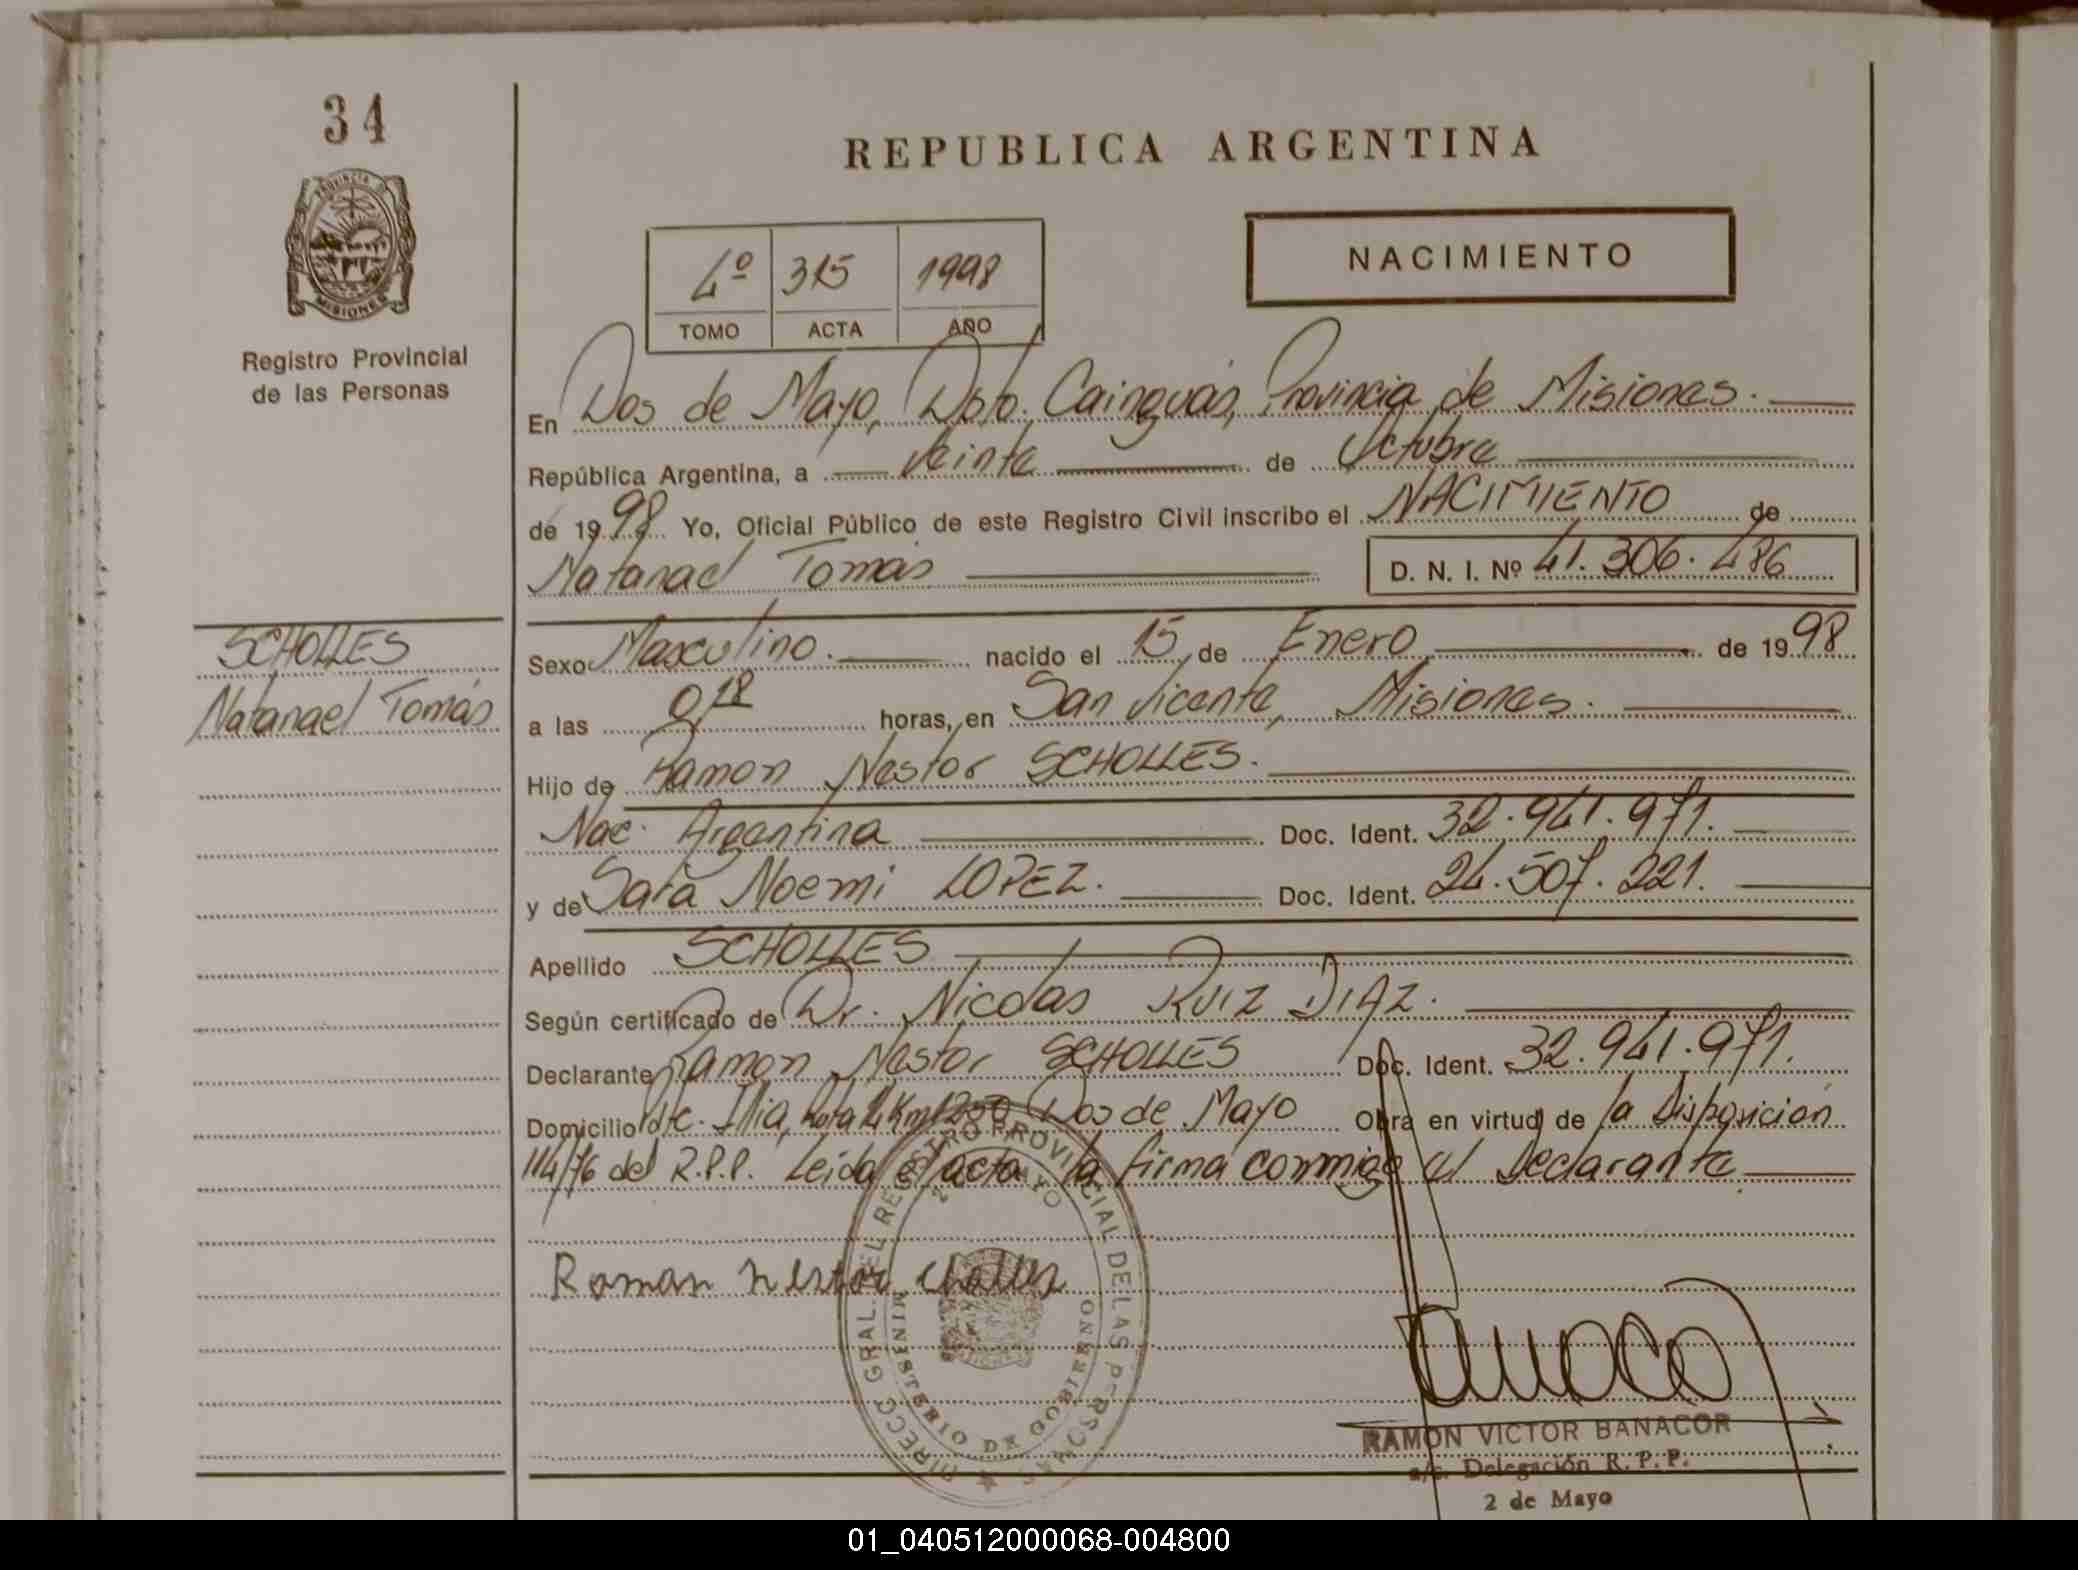 34
REPUBLICA ARGENTINA
PROVINCIA DE
MISIONES
Registro Provincial
de las Personas
4º 315 1998
TOMO ACTA AÑO
NACIMIENTO
En Dos de Mayo, Dpto. Cainguás, Provincia de Misiones.
República Argentina, a veinte de Octubre
de 1998 Yo, Oficial Público de este Registro Civil inscribo el NACIMIENTO de
Natanael Tomás D. N. I. Nº 41.306.486
SCHOLLES
Natanael Tomás
Sexo Masculino. nacido el 15 de Enero de 1998
a las horas, en San Vicente, Misiones.
Hijo de Ramon Nestor SCHOLLES.
Nac. Argentina Doc. Ident. 32.941.971.
y de Sara Noemi LOPEZ. Doc. Ident. 24.507.221.
Apellido SCHOLLES
Según certificado de Dr. Nicolas RUIZ DIAZ.
Declarante Ramon Nestor SCHOLLES Doc. Ident. 32.941.971.
Domicilio Illia, Km 1250 Dos de Mayo Obra en virtud de la Disposición
114/76 del R.P.P. Leida el acta la firma conmigo el Declarante
Roman nestor choller
DIRECC GRAL. DEL REGISTRO PROVINCIAL DE LAS PERSONAS
2 DE MAYO
MINISTERIO DE GOBIERNO
RAMON VICTOR BANACOR
a/c. Delegación R. P. P.
2 de Mayo
01_040512000068-004800